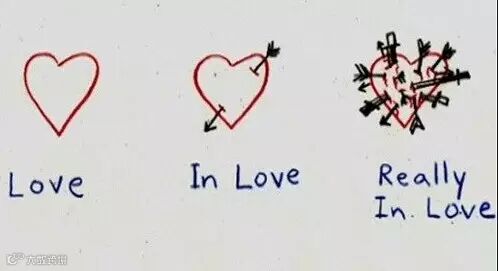 Love
In Love
Really
In Love